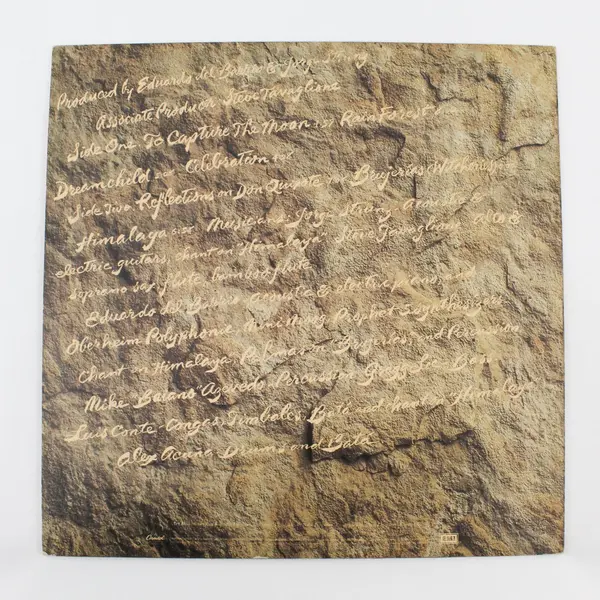 Produced by Eduardo del Barrio & Jorge Strunz
Associate Producer Steve Tavaglione
Side One To Capture The Moon Rain Forest
Dreamchild Celebration
Side Two Reflections on Don Quixote Brujerias
Himalaya Musicians Jorge Strunz Acoustic &
electric guitars, chant on "Himalaya" Steve Tavaglione alto &
soprano sax, flute, bamboo flute
Eduardo del Barrio acoustic & electric pianos and
Oberheim Polyphonic, Mini Moog, Prophet Synthesizers
Chant on Himalaya, Palmas on Brujerias, and Percussion
Mike "Baiano" Azevedo, Percussion Gregg Lee Bass
Luis Conte Congas, Timbales, Bata and chant on Himalaya
Alex Acuna Drums and Bata
Capitol
EMI